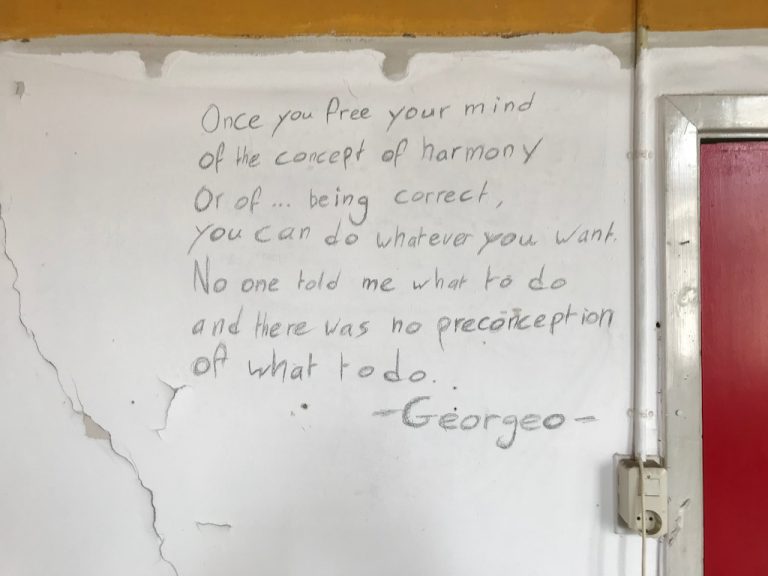 Once you free your mind
of the concept of harmony
Or of... being correct,
you can do whatever you want.
No one told me what to do
and there was no preconception
of what to do..
-Georgeo-